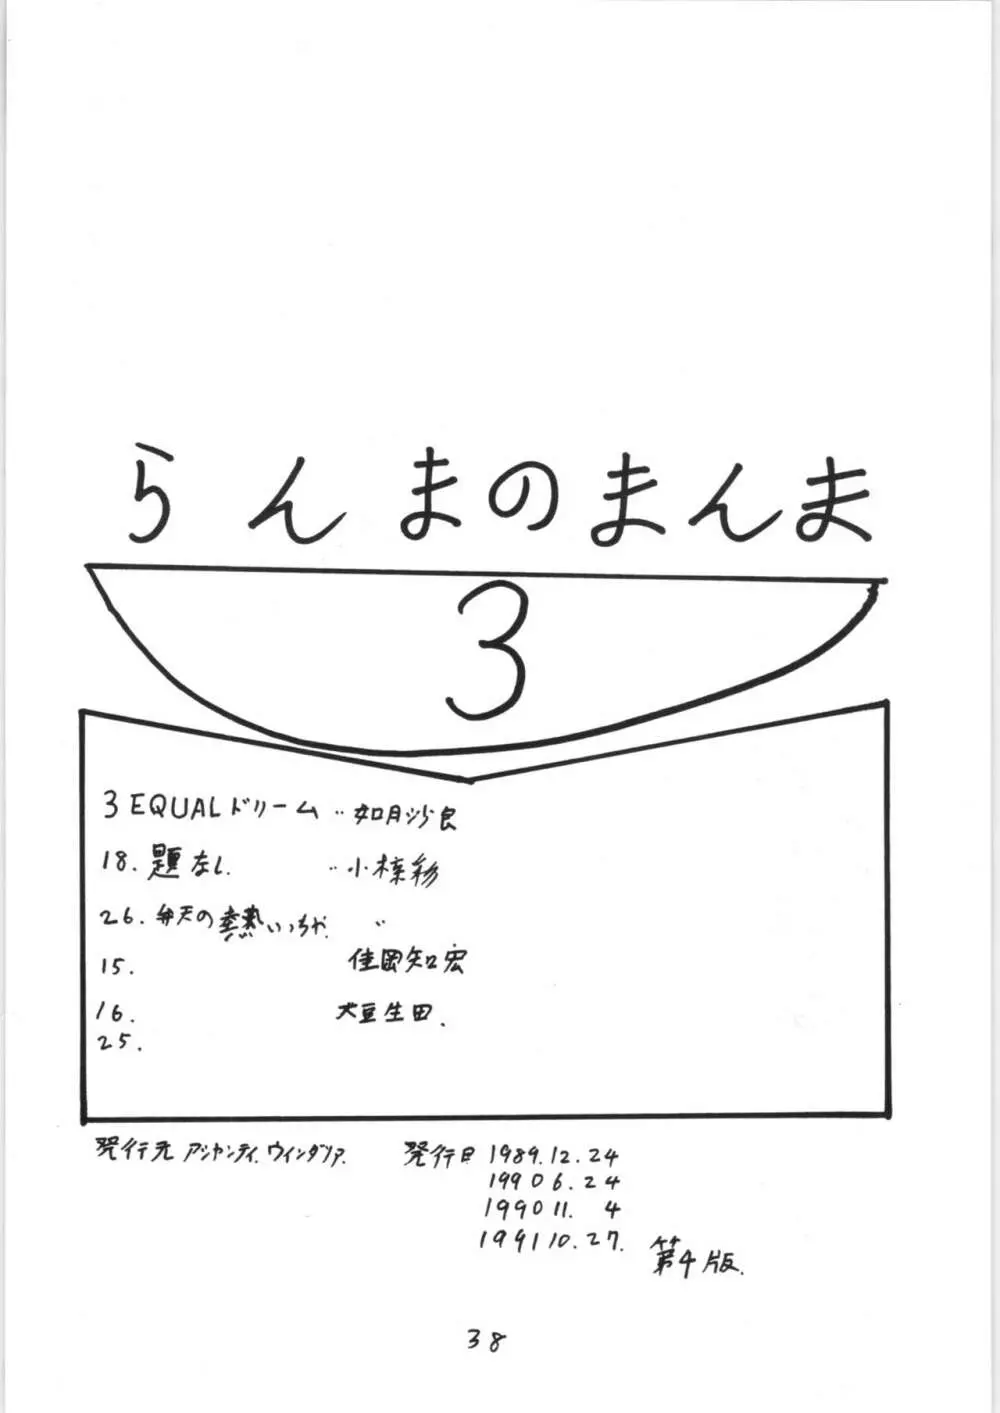 らんまのまんま
3
3 EQUALドリーム ‥如月沙良
18. 題なし. ‥小榛彩
26. 弁天の熱いっちゃ. 〃
15. 佳岡知宏
16. 犬豆生田.
25.
発行元 アシャンティ.ウィンダリア. 発行日 1989.12.24
19906.24
199011. 4
199110.27. 第4版.
38